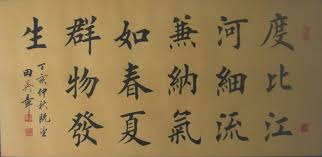 度比江
河細流
兼納氣
如春夏
群物發
生
丁亥仲秋既望
田英章